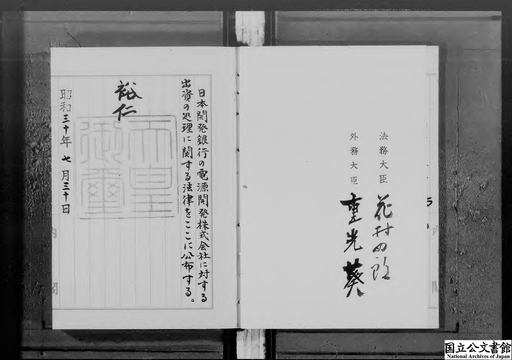 法務大臣 花村四郎
外務大臣 重光葵
日本開発銀行の電源開発株式会社に対する
出資の処理に関する法律をここに公布する。
裕仁
天皇御璽
昭和三十年七月三十日
国立公文書館
National Archives of Japan